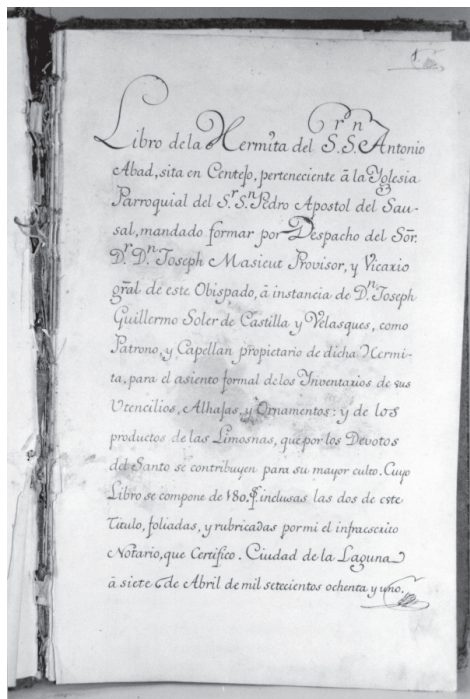 1
Libro de la Hermita del S.r S.n Antonio
Abad, sita en Centejo, perteneciente â la Yglesia
Parroquial del S.r S.n Pedro Apostol del Sau-
sal, mandado formar por Despacho del Sõr.
D.r D.n Joseph Masieut Provisor, y Vicario
gral de este Obispado, â instancia de D.n Joseph
Guillermo Soler de Castilla y Velasques, como
Patrono, y Capellan propietario de dicha Hermi-
ta, para el asiento formal delos Ynventarios de sus
Utencilios, Alhajas, y Ornamentos: y de los
productos de las Limosnas, que por los Devotos
del Santo se contribuyen para su mayor culto. Cuyo
Libro se compone de 180. inclusas las dos de este
Titulo, foliadas, y rubricadas por mi el infraescrito
Notario, que Certifico. Ciudad de la Laguna
â siete de Abril de mil setecientos ochenta y uno.